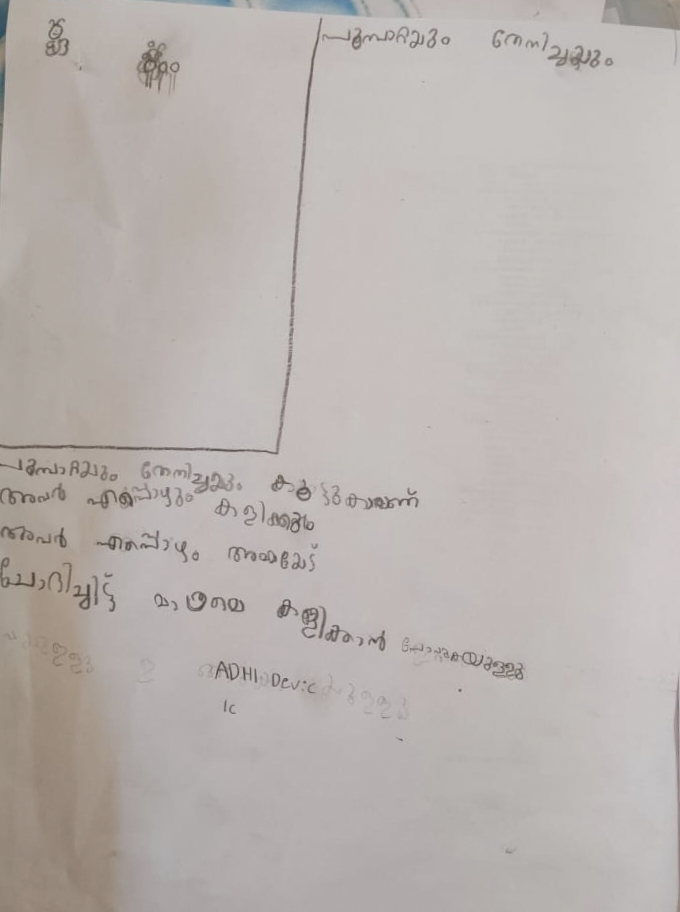 പൂമ്പാറ്റയും തേനിച്ചയും
പൂമ്പാറ്റയും തേനിച്ചയും കൂട്ടുകാരാണ്
അവർ എപ്പൊഴും കളിക്കും
അവർ എപ്പൊഴും അമ്മയോട്
ചോദിച്ചിട്ട് മാത്രമെ കളിക്കാൻ പോവുകയുള്ളു
ADHI Devic
1c